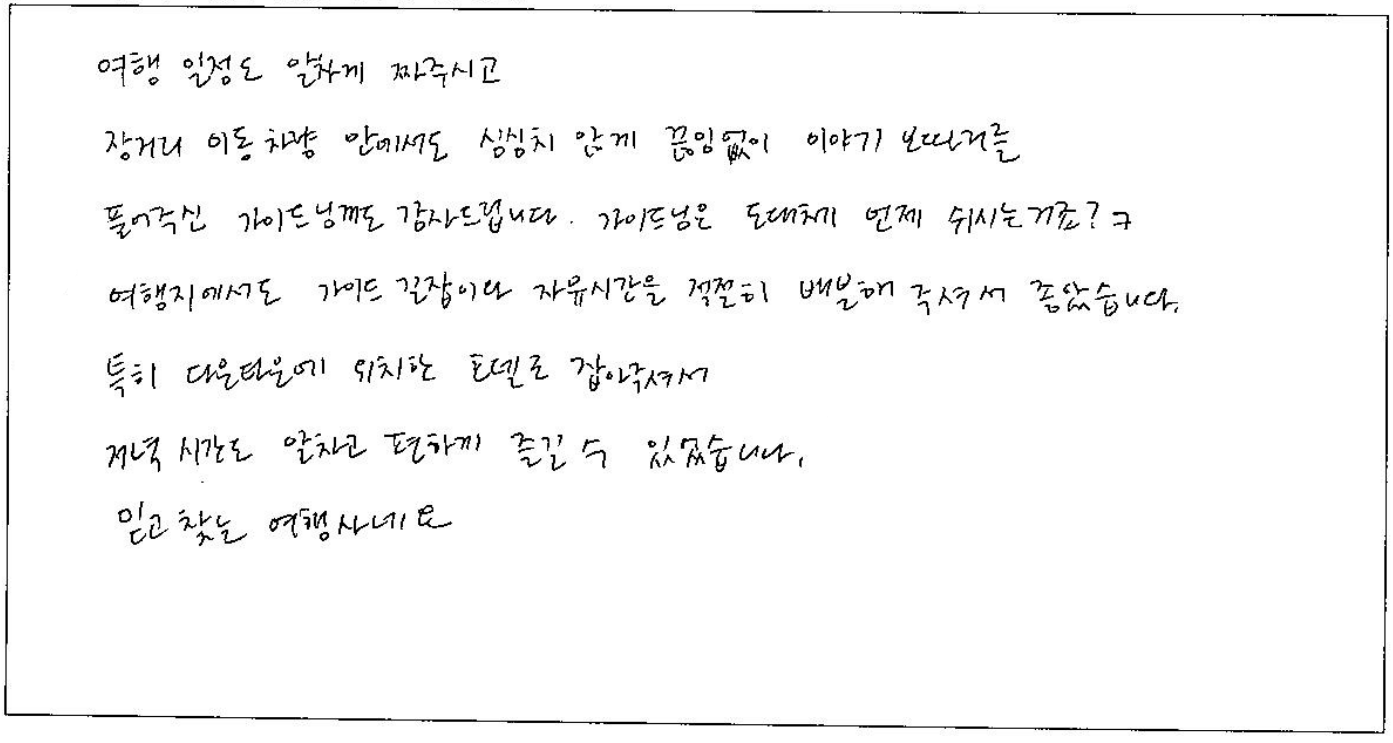 여행 일정도 알차게 짜주시고
장거리 이동 차량 안에서도 심심치 않게 끊임없이 이야기 보따리를
풀어주신 가이드님께도 감사드립니다. 가이드님은 도대체 언제 쉬시는거죠? ㅋ
여행지에서도 가이드 길잡이와 자유시간을 적절히 배분해 주셔서 좋았습니다.
특히 다운타운에 위치한 호텔로 잡아주셔서
저녁 시간도 알차고 편하게 즐길 수 있었습니다.
믿고 찾는 여행사네요